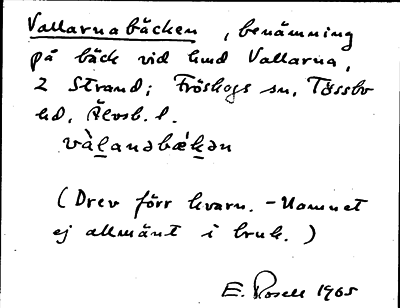 Vallarnabäcken, benämning
på bäck vid hmd Vallarna,
2 Strand; Fröskogs sn, Tössbo
hd, Älvsb. l.
và̱lanəbǽ̱kən
(Drev förr kvarn. - Namnet
ej allmänt i bruk.)
E. Rosell 1965